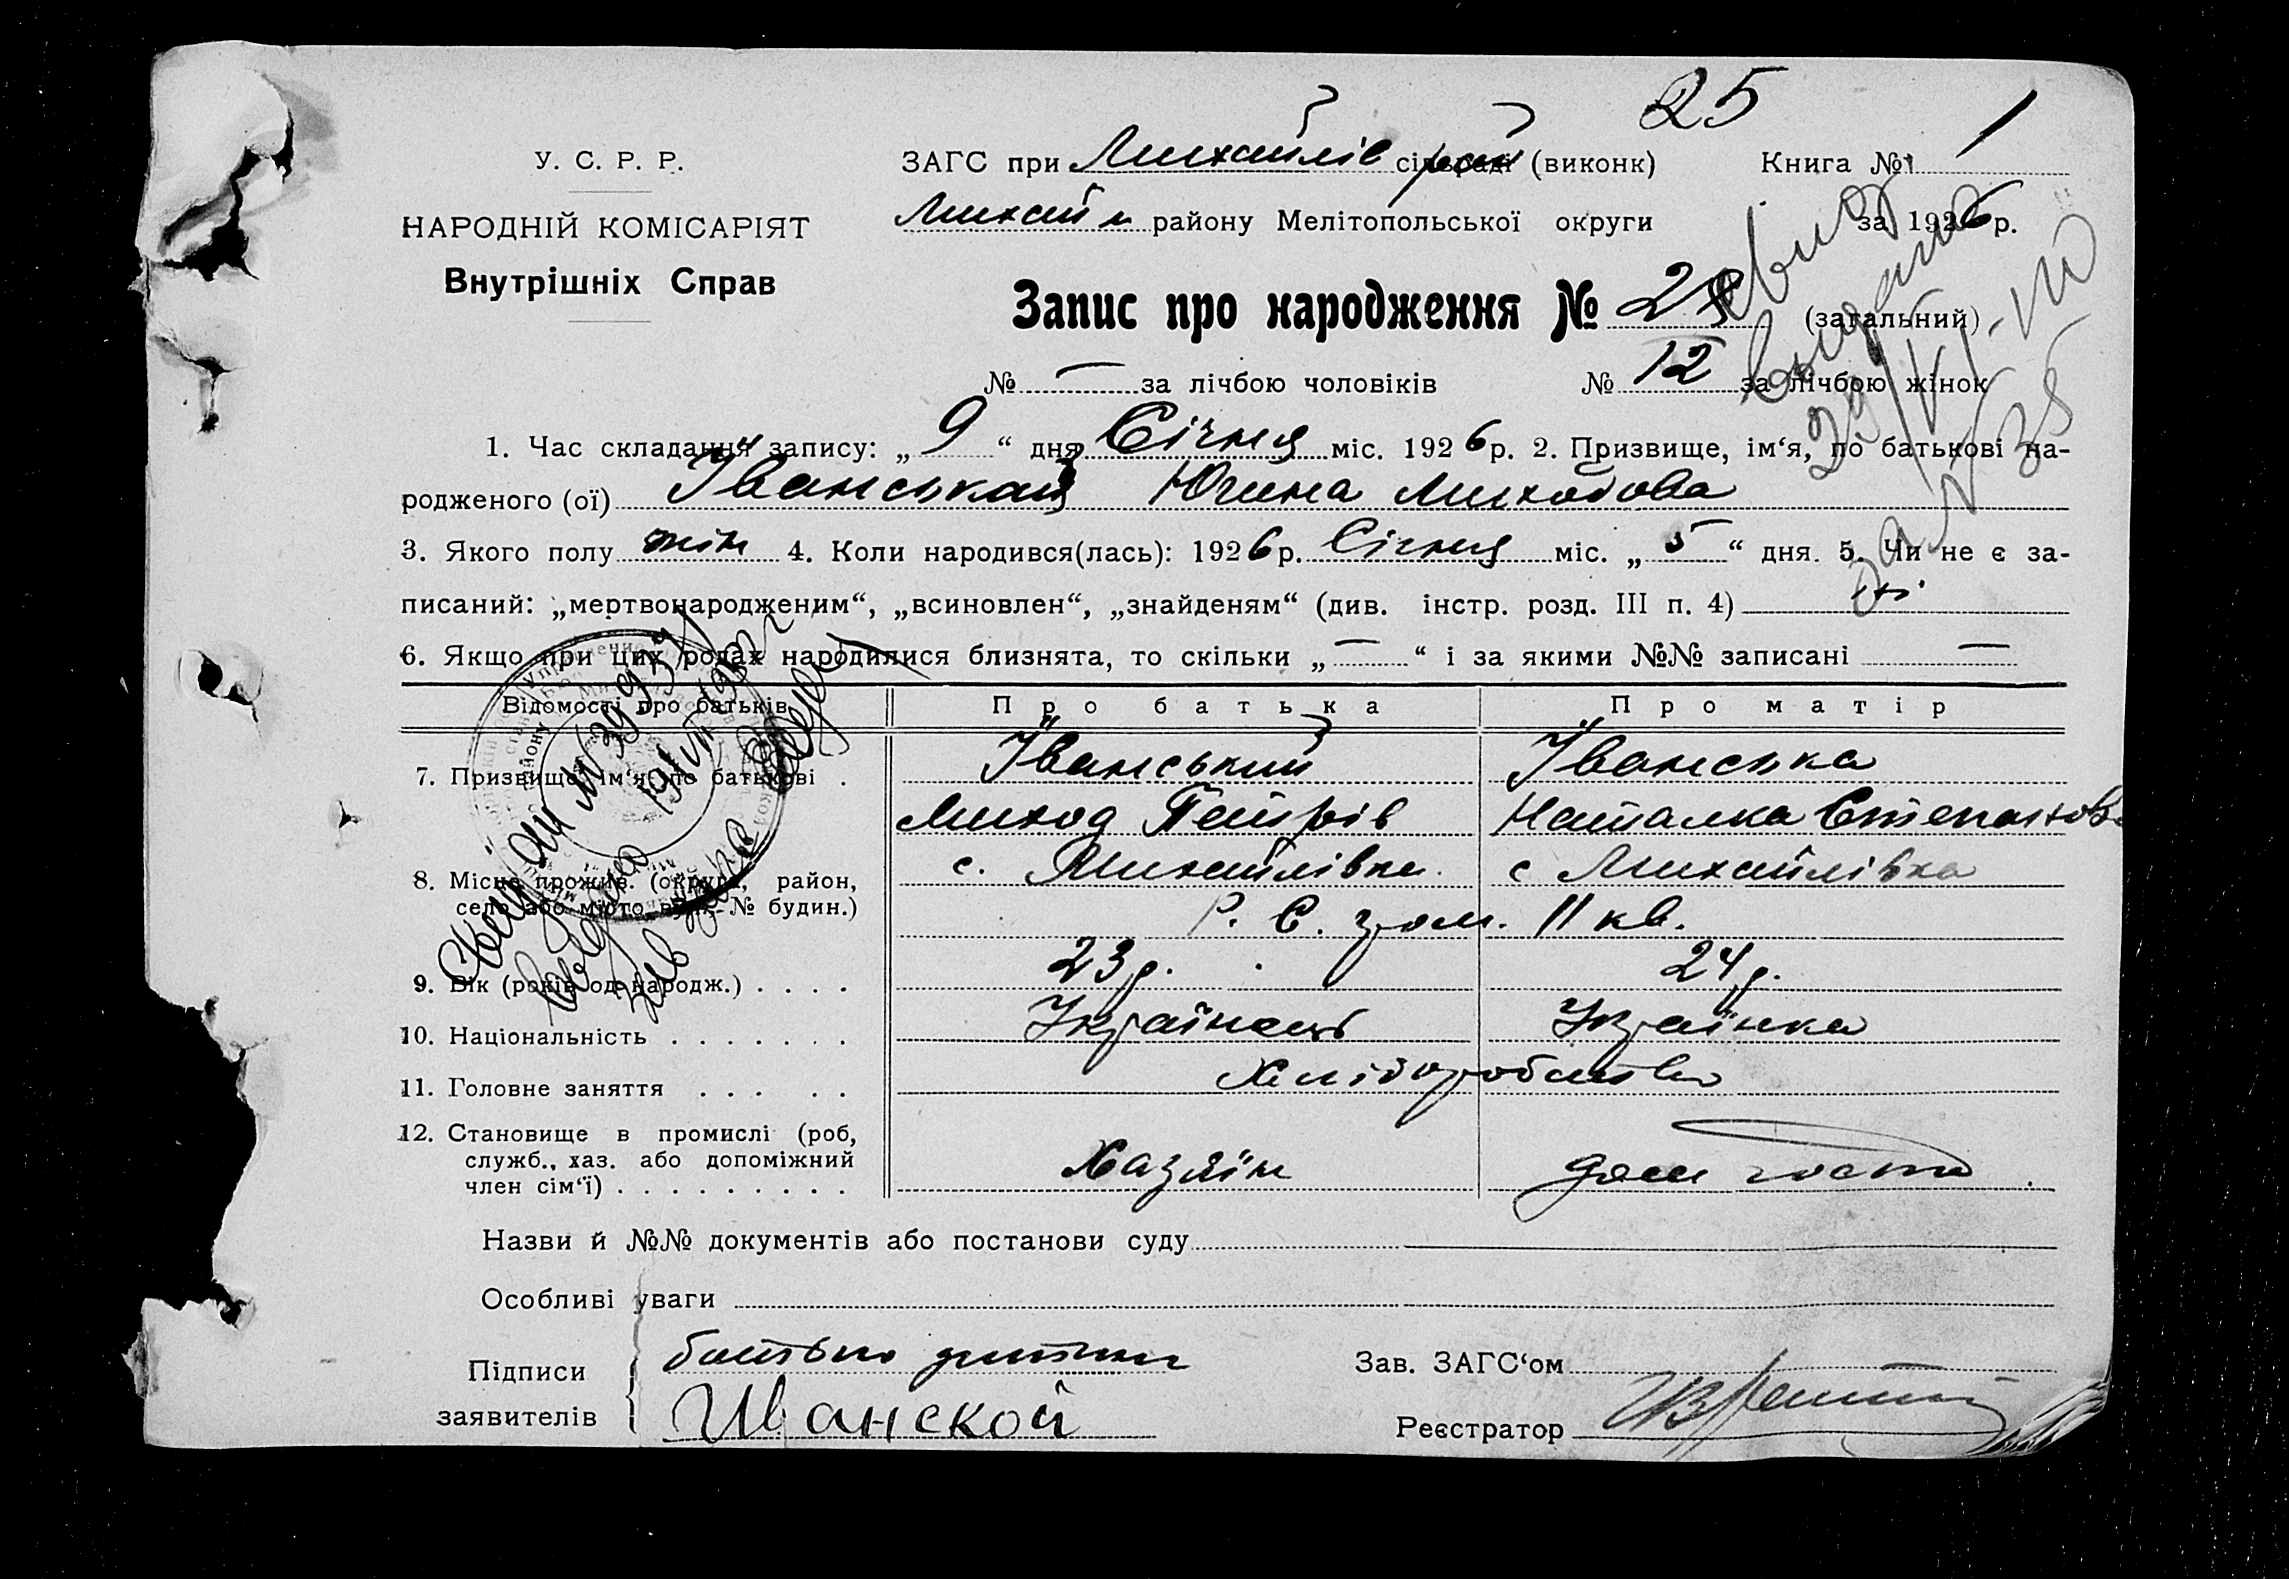 25
У. С. Р. Р.
НАРОДНІЙ КОМІСАРІЯТ
Внутрішніх Справ
ЗАГС при Михайлів рай сільраді (виконк) Книга № 1
Михайл району Мелітопольської округи за 1926 р.
Запис про народження № (загальний)
№ — за лічбою чоловіків № 12 за лічбою жінок
1. Час складання запису: „ 9 “ дня Січня міс. 1926 р. 2. Призвище, ім‘я, по батькові на-
родженого (ої) Іванськая Юхима Миходова
3. Якого полу жін 4. Коли народився(лась): 1926 р. Січня міс. „ 5 “ дня. 5. Чи не є за-
писаний: „мертвонародженим“, „всиновлен“, „знайденям“ (див. інстр. розд. III п. 4) ні
6. Якщо при цих родах народилися близнята, то скільки „ — “ і за якими №№ записані —
Відомості про батьків Про батька Про матір
7. Призвище, ім‘я, по батькові . Іванський Іванська
Миход Петрів Наталка Степанов
8. Місце прожив. (округа, район, с. Михайлівка с Михайлівка
село або місто, вул., № будин.) Р. С. гром. 11 кв.
9. Вік (років од народж.) . . . . 23 р. 24 р.
10. Національність . . . . . . . Українець Українка
11. Головне заняття . . . . . Хліборобство
12. Становище в промислі (роб,
служб., хаз. або допоміжний Хазяїн дом госп
член сім‘ї) . . . . . . . . .
Назви й №№ документів або постанови суду
Особливі уваги
Підписи батько дитини Зав. ЗАГС‘ом
заявителів Иванской Реєстратор